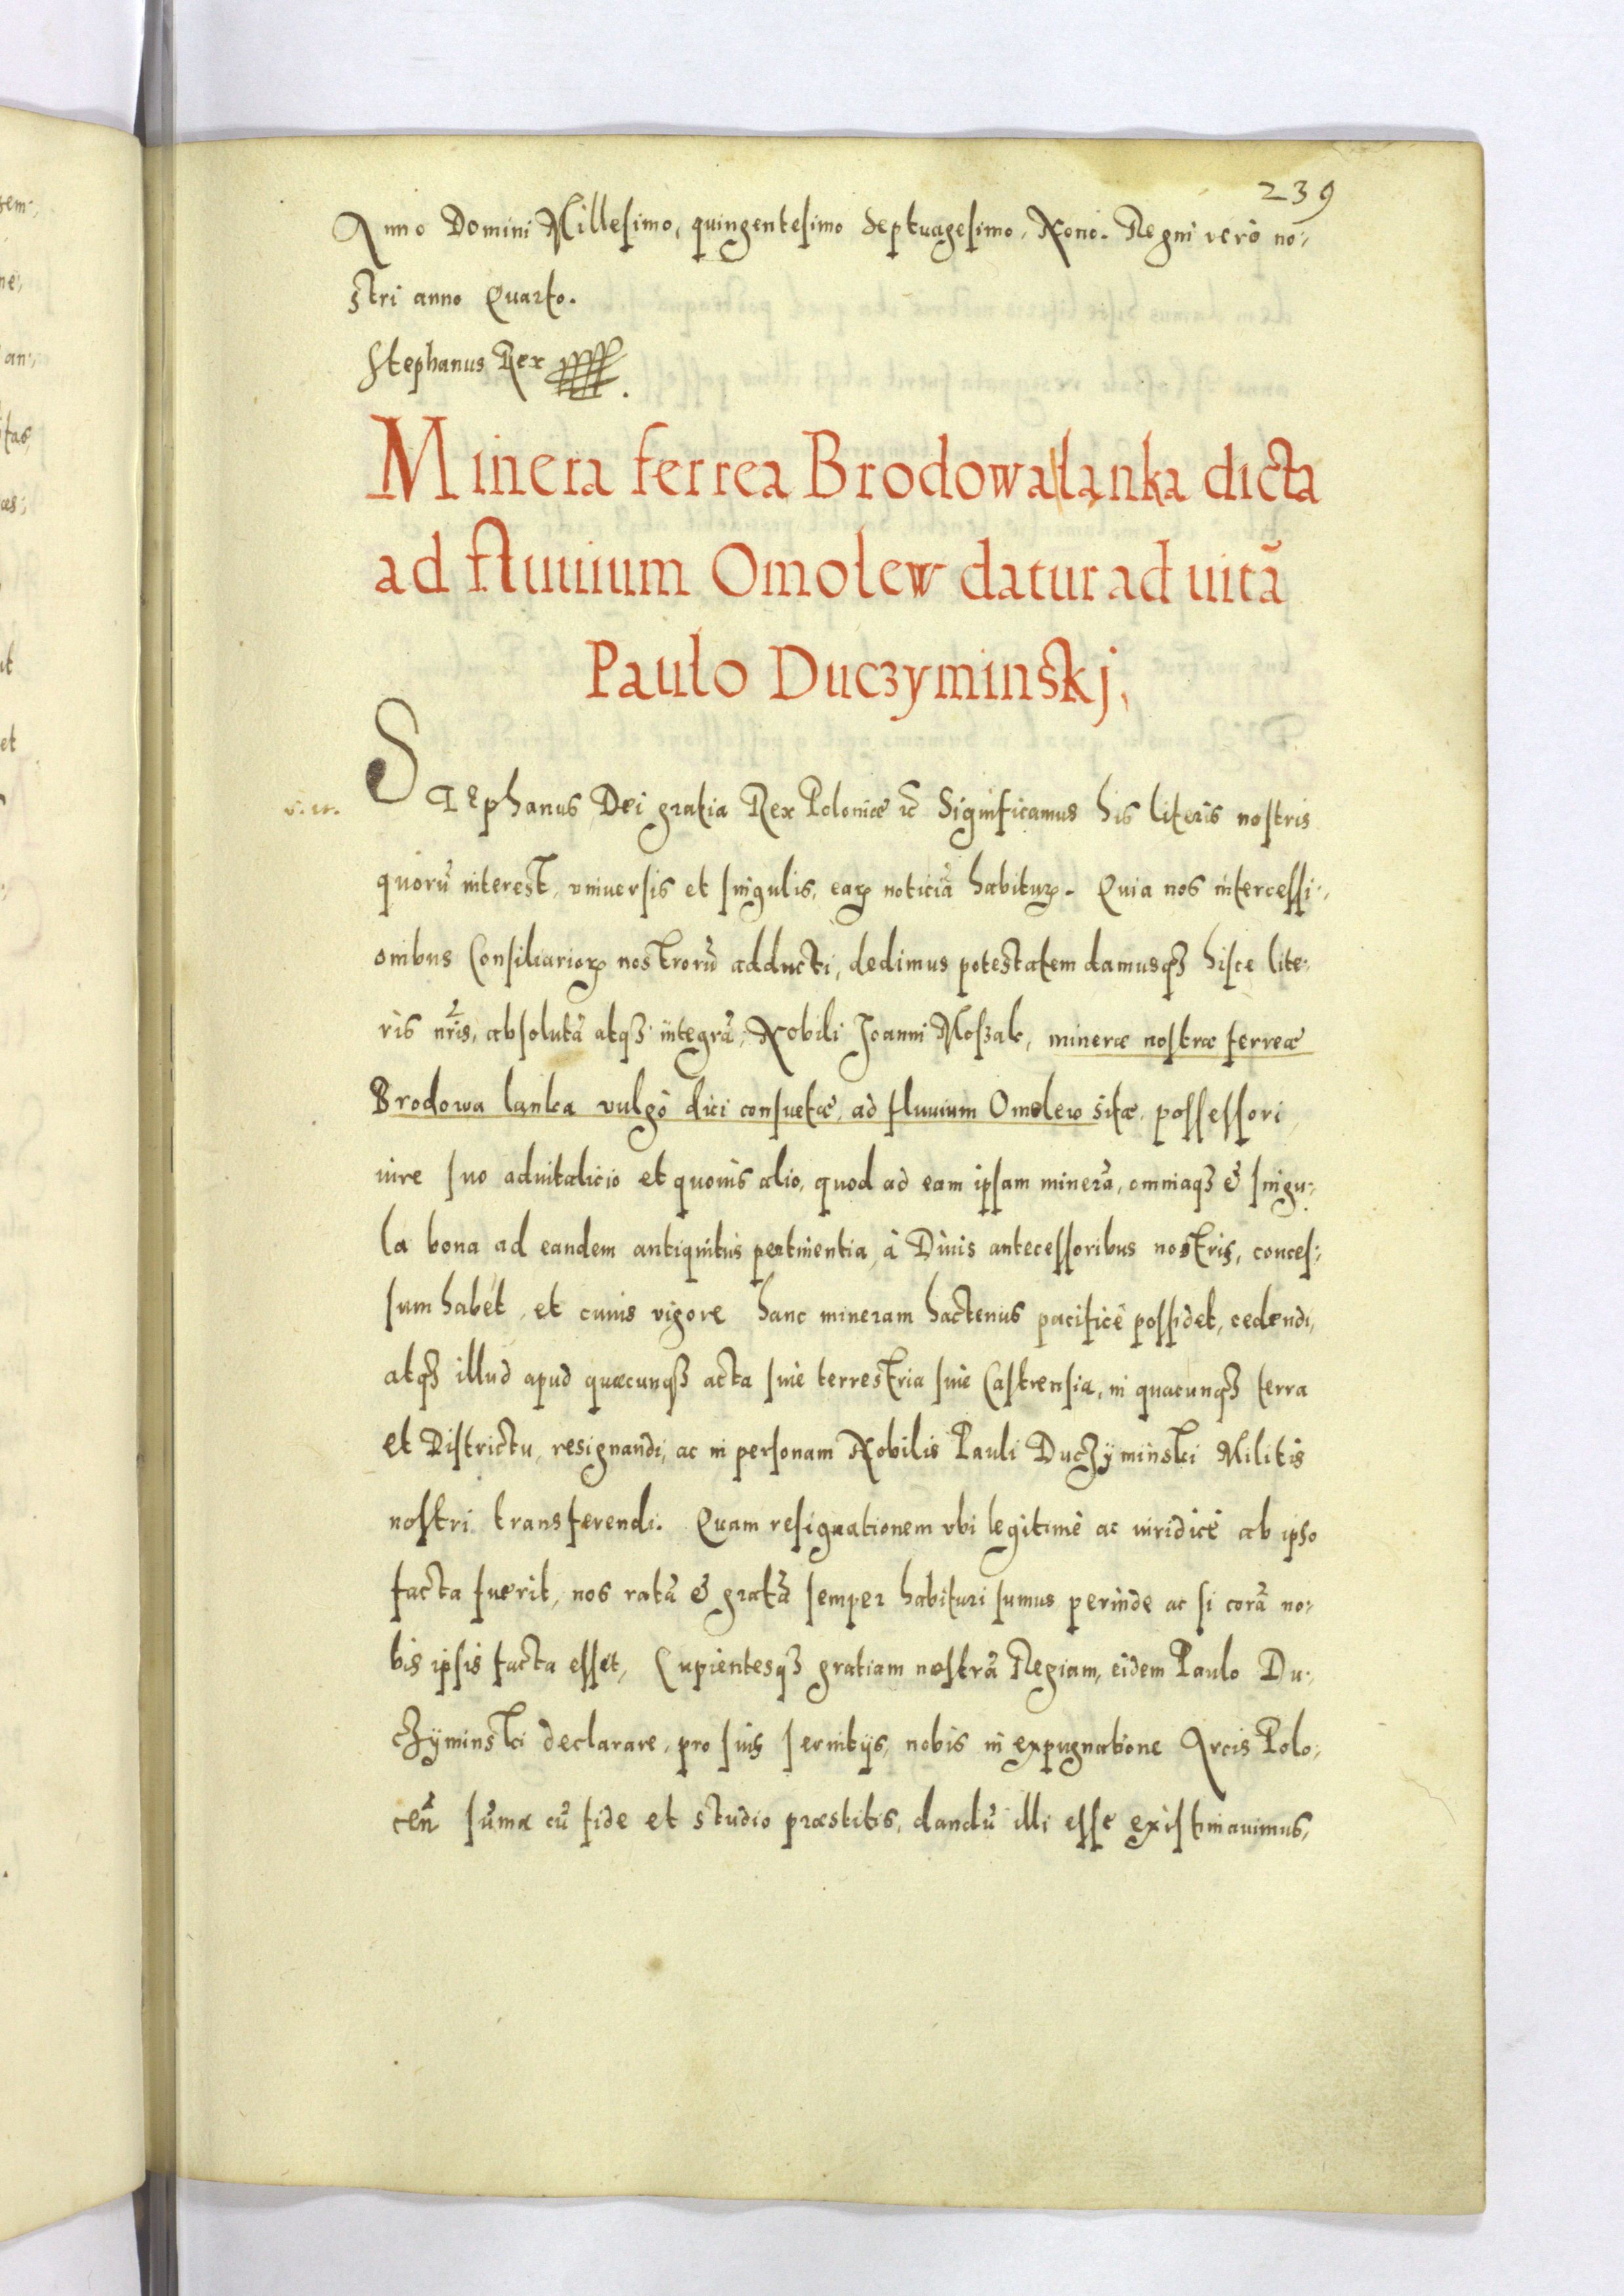 239
Anno Domini Millesimo, quingentesimo Septuagesimo, Nono. Regni verò no:
stri anno Quarto.
Stephanus Rex
Minera ferrea Brodowa lanka dicta
ad fluuium Omolew datur ad uitã
Paulo Duczyminskj,
v. w.
STEphanus Dei gratia Rex Poloniæ etc̃ Significamus his literis nostris
quorũ interest, vniuersis et singulis, earꝝ noticiã habiturꝝ. Quia nos intercessi:
onibus Consiliarioꝝ nostrorũ adducti, dedimus potestatem damusqꝫ hisce lite:
ris nr̃is, absolutã atqꝫ integrã, Nobili Joanni Moszak, mineræ nostræ ferreæ
Brodowa lanka vulgò dici consuetæ, ad fluuium Omolew sitæ, possessori
iure suo aduitalicio et quouis alio, quod ad eam ipsam minerã, omniaqꝫ & singu:
la bona ad eandem antiquitus pertinentia, à Diuis antecessoribus nostris, conces:
sum habet, et cuius vigore hanc mineram hactenus pacificè possidet, cedendi,
atqꝫ illud apud quæcunqꝫ acta siue terrestria siue Castrensia, in quacunqꝫ terra
et Districtu, resignandi, ac in personam Nobilis Pauli Duczÿminski Militis
nostri transferendi. Quam resignationem vbi legitimè ac iuridicè ab ipso
facta fuerit, nos ratã & gratã semper habituri sumus perinde ac si corã no:
bis ipsis facta esset, Cupientesqꝫ gratiam nostrã Regiam, eidem Paulo Du:
czÿminski declarare, pro suis seruitijs, nobis in expugnatione Arcis Polo:
cen̄ sũma cũ fide et studio præstitis, dandũ illi esse existimauimus,